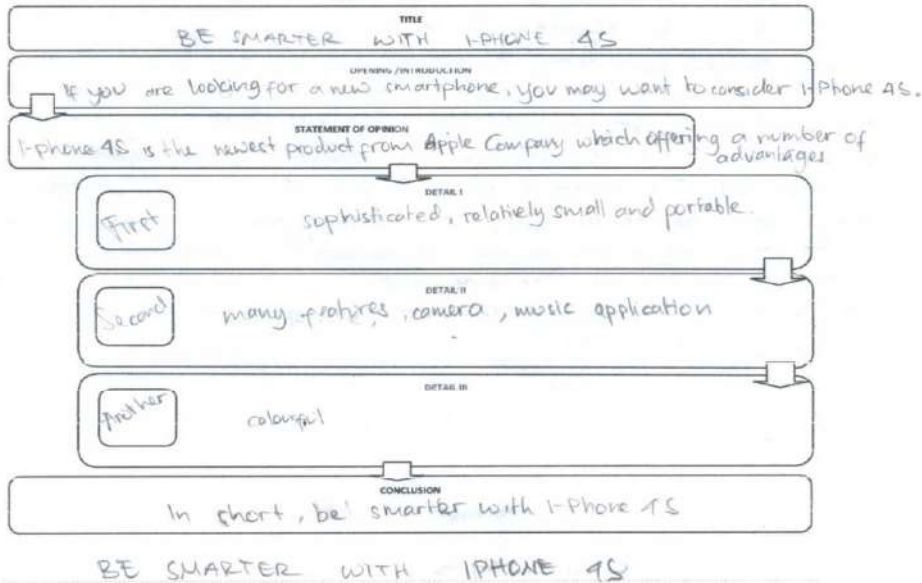 TITLE
BE SMARTER WITH I-PHONE 4S
OPENING / INTRODUCTION
If you are looking for a new smartphone, you may want to consider I-Phone 4S.
STATEMENT OF OPINION
I-phone 4S is the newest product from Apple Company which offering a number of
advantages
DETAIL I
First
sophisticated, relatively small and portable.
DETAIL II
Second
many features, camera, music application
DETAIL III
Another
colourful
CONCLUSION
In short, be smarter with I-Phone 4S
BE SMARTER WITH IPHONE 4S